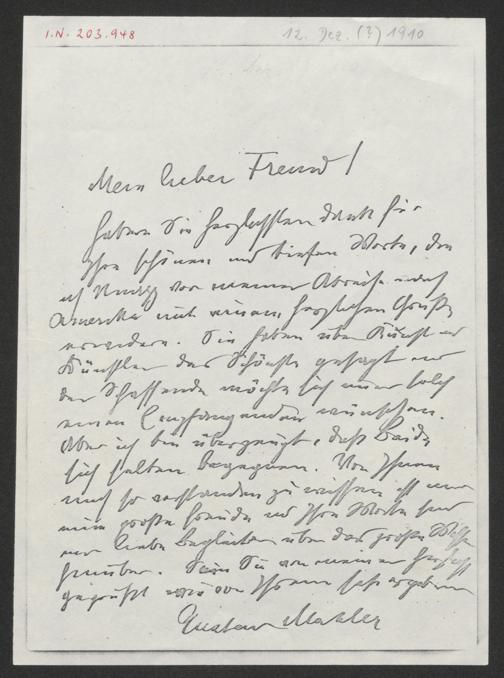 I.N. 203.948
12. Dez. (?) 1910
Mein lieber Freund!
Haben Sie herzlichsten Dank für
Ihre schönen und tiefen Worte, die
ich knapp vor meiner Abreise nach
Amerika mit einem herzlichen Gruße
erwidere. Sie haben über Künste und
Künstler das Schönste gesagt und
der Schaffende möchte sich immer solch
einen Empfangenden wünschen.
Aber ich bin überzeugt, daß Beide
sich selten begegnen. Von Ihnen
mich so verstanden zu wissen ist mir
eine große Freude und Ihre Worte sind
mir liebe Begleiter über das große Wasser
hinüber. Seien Sie von meiner herzlichst
gegrüßt wie von Ihrem sehr ergebenen
Gustav Mahler